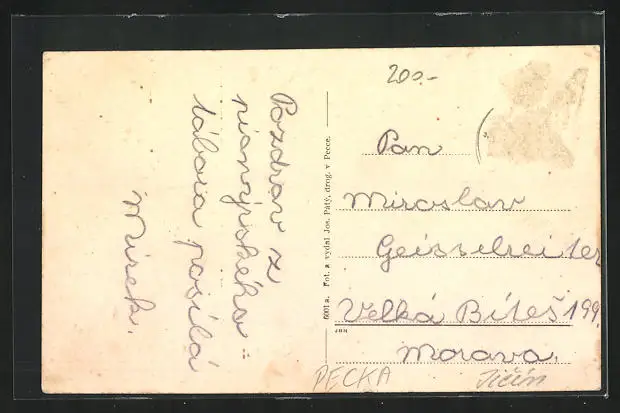 Pozdrav z
pionýrského
tábora posílá
Mirek.
6001 a. Fot. a vydal Jos. Patý, drog. v Pecce.
200.-
Pan
Miroslav
Geisselreiter
Velká Bíteš 199.
JRH
Morava.
PECKA
Jičín